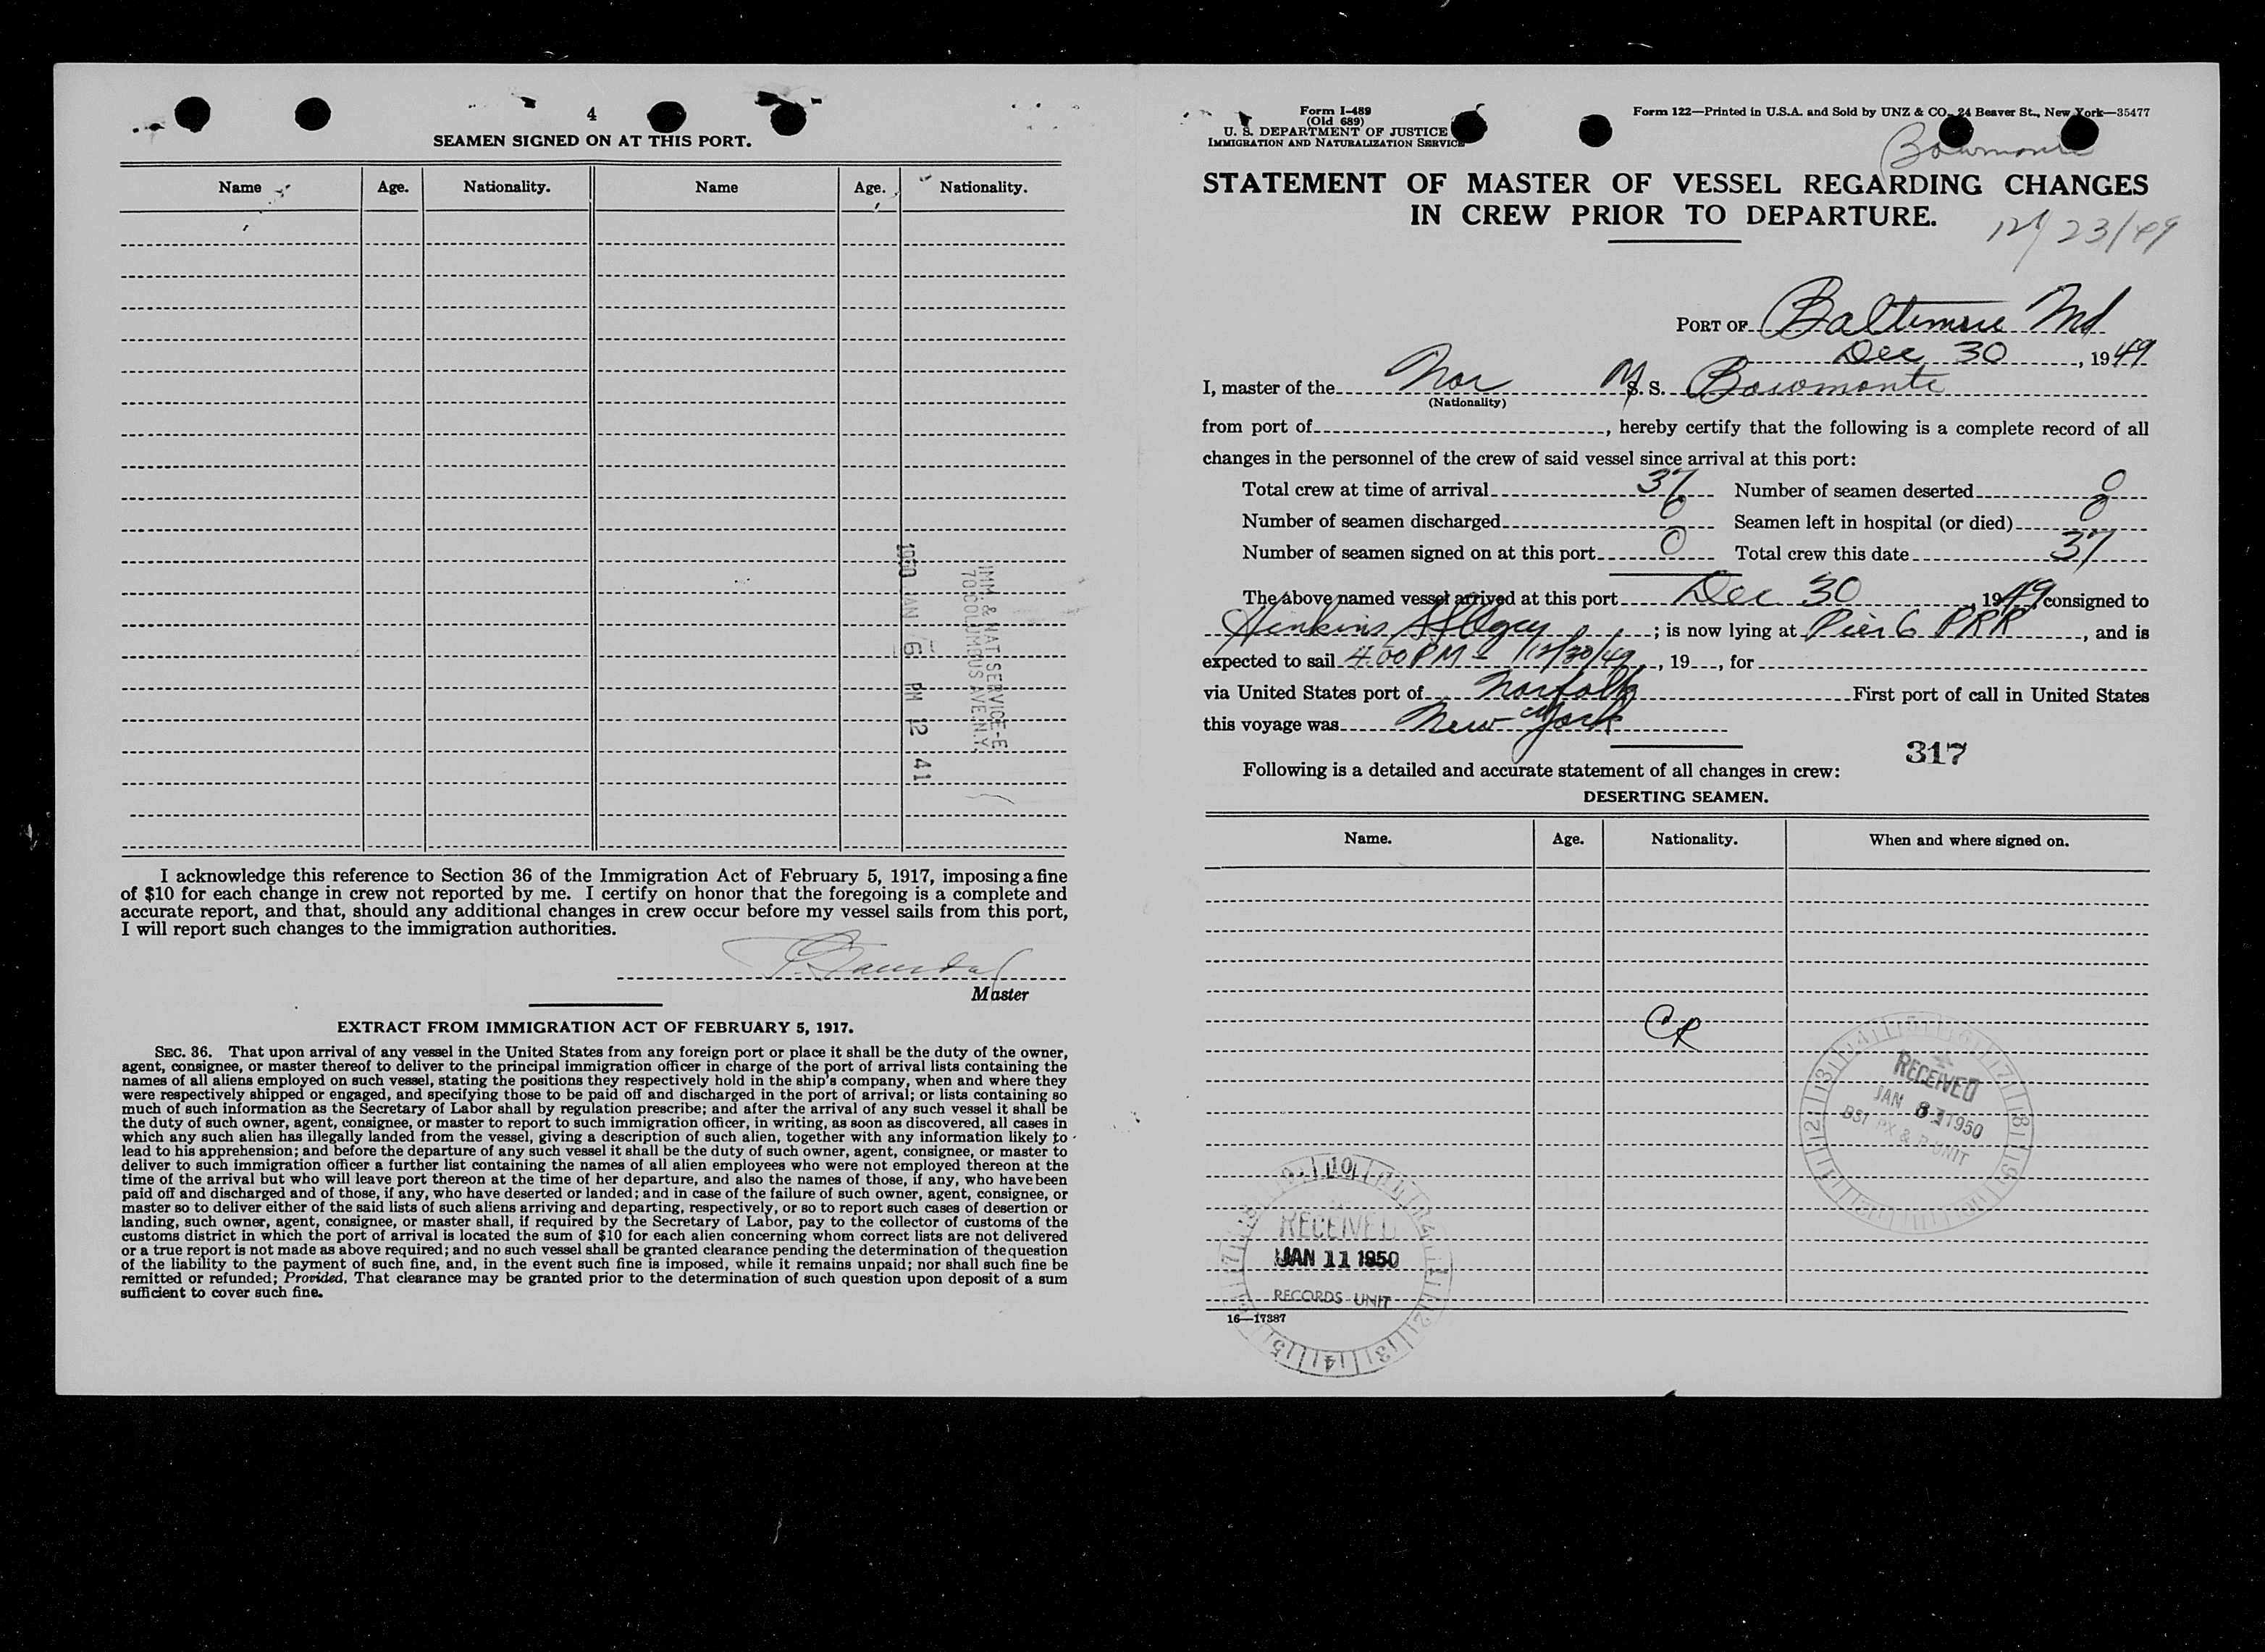 4
SEAMEN SIGNED ON AT THIS PORT.
Name Age. Nationality. Name Age. Nationality.
IMM. & NAT SERVICE-E
70 COLUMBUS AVE.N.Y.
1950 JAN 6 PM 12 41
I acknowledge this reference to Section 36 of the Immigration Act of February 5, 1917, imposing a fine
of $10 for each change in crew not reported by me. I certify on honor that the foregoing is a complete and
accurate report, and that, should any additional changes in crew occur before my vessel sails from this port,
I will report such changes to the immigration authorities.
Master
EXTRACT FROM IMMIGRATION ACT OF FEBRUARY 5, 1917.
SEC. 36. That upon arrival of any vessel in the United States from any foreign port or place it shall be the duty of the owner,
agent, consignee, or master thereof to deliver to the principal immigration officer in charge of the port of arrival lists containing the
names of all aliens employed on such vessel, stating the positions they respectively hold in the ship's company, when and where they
were respectively shipped or engaged, and specifying those to be paid off and discharged in the port of arrival; or lists containing so
much of such information as the Secretary of Labor shall by regulation prescribe; and after the arrival of any such vessel it shall be
the duty of such owner, agent, consignee, or master to report to such immigration officer, in writing, as soon as discovered, all cases in
which any such alien has illegally landed from the vessel, giving a description of such alien, together with any information likely to
lead to his apprehension; and before the departure of any such vessel it shall be the duty of such owner, agent, consignee, or master to
deliver to such immigration officer a further list containing the names of all alien employees who were not employed thereon at the
time of the arrival but who will leave port thereon at the time of her departure, and also the names of those, if any, who have been
paid off and discharged and of those, if any, who have deserted or landed; and in case of the failure of such owner, agent, consignee, or
master so to deliver either of the said lists of such aliens arriving and departing, respectively, or so to report such cases of desertion or
landing, such owner, agent, consignee, or master shall, if required by the Secretary of Labor, pay to the collector of customs of the
customs district in which the port of arrival is located the sum of $10 for each alien concerning whom correct lists are not delivered
or a true report is not made as above required; and no such vessel shall be granted clearance pending the determination of the question
of the liability to the payment of such fine, and, in the event such fine is imposed, while it remains unpaid; nor shall such fine be
remitted or refunded; Provided, That clearance may be granted prior to the determination of such question upon deposit of a sum
sufficient to cover such fine.
Form I-489
(Old 689)
U. S. DEPARTMENT OF JUSTICE
IMMIGRATION AND NATURALIZATION SERVICE
Form 122—Printed in U.S.A. and Sold by UNZ & CO., 24 Beaver St., New York—35477
Bowmonte
STATEMENT OF MASTER OF VESSEL REGARDING CHANGES
IN CREW PRIOR TO DEPARTURE.
12/23/49
PORT OF Baltimore Md
Dec 30, 1949
I, master of the Nor M S. S. Bowmonte
(Nationality)
from port of , hereby certify that the following is a complete record of all
changes in the personnel of the crew of said vessel since arrival at this port:
Total crew at time of arrival 37 Number of seamen deserted 0
Number of seamen discharged 0 Seamen left in hospital (or died) 0
Number of seamen signed on at this port 0 Total crew this date 37
The above named vessel arrived at this port Dec 30, 1949, consigned to
Hinkins SS Agcy ; is now lying at Pier 6 PRR, and is
expected to sail 4.00 PM - 12/30/49, 19 , for
via United States port of Norfolk First port of call in United States
this voyage was New York
317
Following is a detailed and accurate statement of all changes in crew:
DESERTING SEAMEN.
Name. Age. Nationality. When and where signed on.
CR
RECEIVED
JAN 1950
BSI PX & P UNIT
RECEIVED
JAN 11 1950
RECORDS UNIT
16—17387